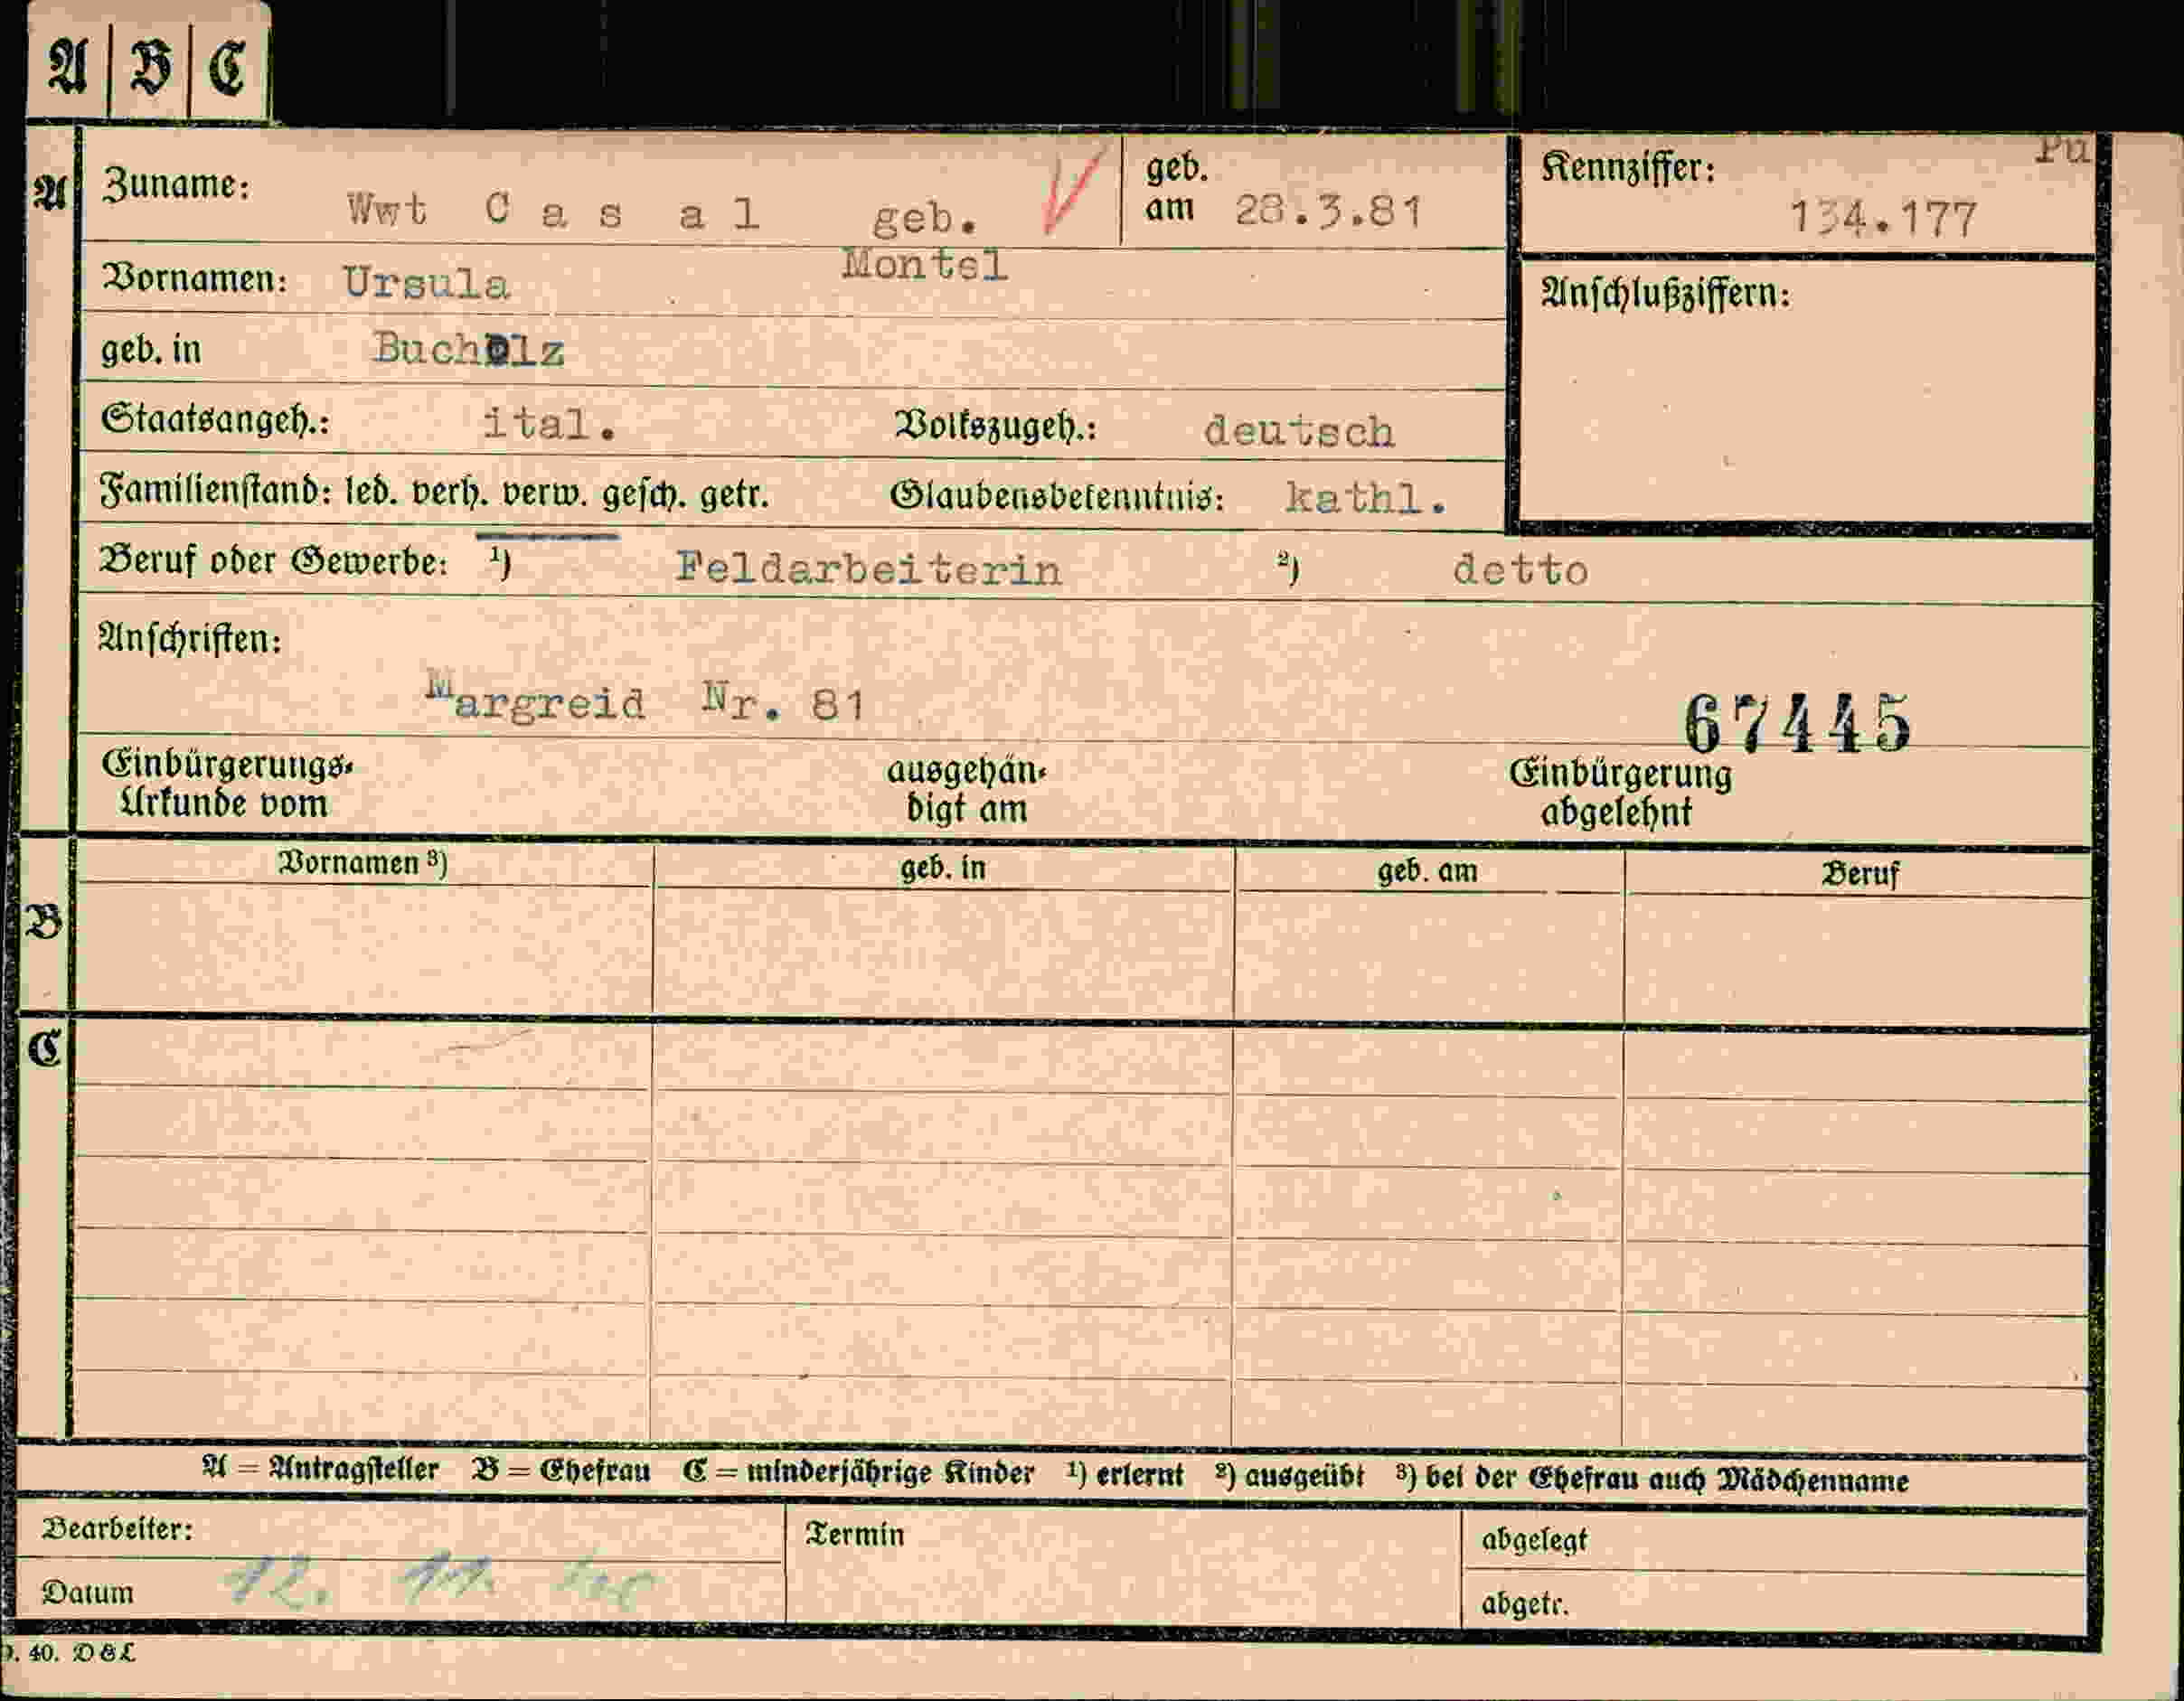 A | B | C
Pu
A Zuname: Wwt C a s a l geb. geb. am 28.3.81 Kennziffer: 134.177
Montel
Vornamen: Ursula Anschlußziffern:
geb. in Bucholz
Staatsangeh.: ital. Volkszugeh.: deutsch
Familienstand: led. verh. verw. gesch. getr. Glaubensbekenntnis: kathl.
Beruf oder Gewerbe: ¹) Feldarbeiterin ²) detto
Anschriften:
Margreid Nr. 81
67445
Einbürgerungs- ausgehän- Einbürgerung
Urkunde vom digt am abgelehnt
Vornamen ³) geb. in geb. am Beruf
B
C
A = Antragsteller B = Ehefrau C = minderjährige Kinder ¹) erlernt ²) ausgeübt ³) bei der Ehefrau auch Mädchenname
Bearbeiter: Termin abgelegt
Datum 12. 11. abgetr.
40. D&L